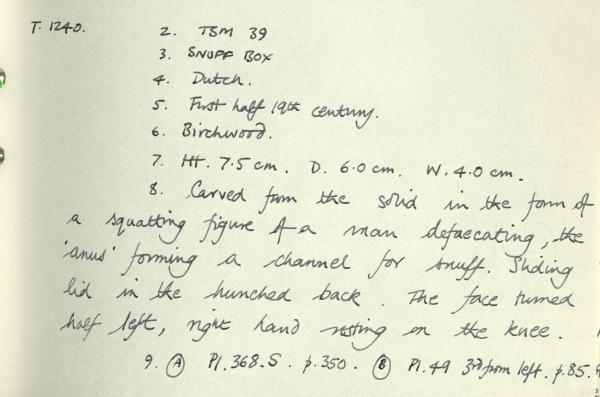 T. 1240. 2. TSM 39
3. SNUFF BOX
4. Dutch.
5. First half 19th century.
6. Birchwood.
7. Ht. 7.5 cm. D. 6.0 cm. W. 4.0 cm.
8. Carved from the solid in the form of
a squatting figure of a man defaecating, the
'anus' forming a channel for snuff. Sliding
lid in the hunched back. The face turned
half left, right hand resting on the knee.
9. (A) Pl. 368.S. p.350. (B) Pl. 49 3rd from left. p.85.